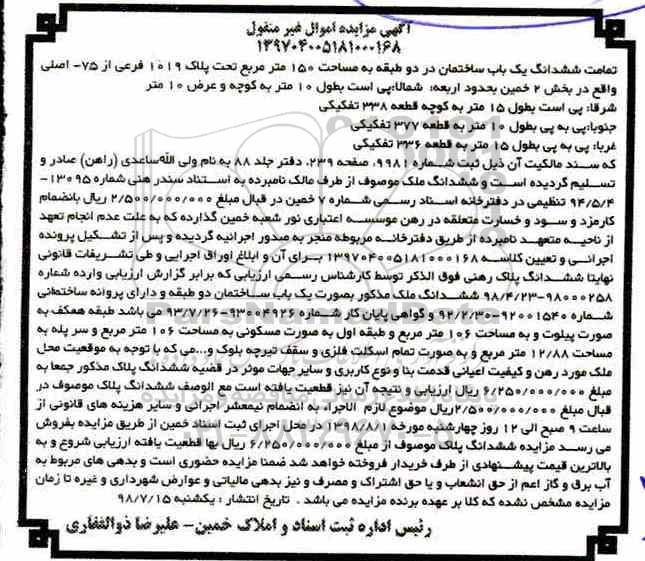 آگهی مزایده اموال غیر منقول
۱۳۹۷۰۴۰۰۵۱۸۱۰۰۰۱۶۸
تمامت ششدانگ یک باب ساختمان در دو طبقه به مساحت ۱۵۰ متر مربع تحت پلاک ۱۰۱۹ فرعی از ۷۵- اصلی
واقع در بخش ۲ خمین بحدود اربعه: شمالا:پی است بطول ۱۰ متر به کوچه و عرض ۱۰ متر
شرقا: پی است بطول ۱۵ متر به کوچه قطعه ۳۳۸ تفکیکی
جنوبا:پی به پی بطول ۱۰ متر به قطعه ۳۷۷ تفکیکی
غربا: پی به پی بطول ۱۵ متر به قطعه ۳۳۶ تفکیکی
که سند مالکیت آن ذیل ثبت شماره ۹۹۸۱، صفحه ۲۳۹، دفتر جلد ۸۸ به نام ولی الله ساعدی (راهن) صادر و
تسلیم گردیده است و ششدانگ ملک موصوف از طرف مالک نامبرده به استناد سند رهنی شماره ۱۳۰۹۵-
۹۴/۵/۴ تنظیمی در دفترخانه اسناد رسمی شماره ۷ خمین در قبال مبلغ ۲/۵۰۰/۰۰۰/۰۰۰ ریال بانضمام
کارمزد و سود و خسارت متعلقه در رهن موسسه اعتباری نور شعبه خمین گذارده که به علت عدم انجام تعهد
از ناحیه متعهد نامبرده از طریق دفترخانه مربوطه منجر به صدور اجرائیه گردیده و پس از تشکیل پرونده
اجرائی و تعیین کلاسه ۱۳۹۷۰۴۰۰۵۱۸۱۰۰۰۱۶۸ برای آن و ابلاغ اوراق اجرایی و طی تشریفات قانونی
نهایتا ششدانگ پلاک رهنی فوق الذکر توسط کارشناس رسمی ارزیابی که برابر گزارش ارزیابی وارده شماره
۹۸۰۰۰۲۵۸-۹۸/۴/۲۳ ششدانگ ملک مذکور بصورت یک باب ساختمان دو طبقه و دارای پروانه ساختمانی
شماره ۹۲۰۰۱۵۴۰-۹۲/۲/۳۰ و گواهی پایان کار شماره ۹۳۰۰۴۹۲۶-۹۳/۷/۲۶ می باشد طبقه همکف به
صورت پیلوت و به مساحت ۱۰۶ متر مربع و طبقه اول به صورت مسکونی به مساحت ۱۰۶ متر مربع و سر پله به
مساحت ۱۲/۸۸ متر مربع و به صورت تمام اسکلت فلزی و سقف تیرچه بلوک و...می که با توجه به موقعیت محل
ملک مورد رهن و کیفیت اعیانی قدمت بنا و نوع کاربری و سایر جهات موثر در قضیه ششدانگ پلاک مذکور جمعا به
مبلغ ۶/۲۵۰/۰۰۰/۰۰۰ ریال ارزیابی و نتیجه آن نیز قطعیت یافته است مع الوصف ششدانگ پلاک موصوف در
قبال مبلغ ۲/۵۰۰/۰۰۰/۰۰۰ریال موضوع لازم الاجراء به انضمام نیمعشر اجرائی و سایر هزینه های قانونی از
ساعت ۹ صبح الی ۱۲ روز چهارشنبه مورخه ۱۳۹۸/۸/۱ در محل اجرای ثبت اسناد خمین از طریق مزایده بفروش
می رسد مزایده ششدانگ پلاک موصوف از مبلغ ۶/۲۵۰/۰۰۰/۰۰۰ ریال بها قطعیت یافته ارزیابی شروع و به
بالاترین قیمت پیشنهادی از طرف خریدار فروخته خواهد شد ضمنا مزایده حضوری است و بدهی های مربوط به
آب برق و گاز اعم از حق انشعاب و یا حق اشتراک و مصرف و نیز بدهی مالیاتی و عوارض شهرداری و غیره تا زمان
مزایده مشخص نشده که کلا بر عهده برنده مزایده می باشد . تاریخ انتشار : یکشنبه ۹۸/۷/۱۵
رئیس اداره ثبت اسناد و املاک خمین- علیرضا ذوالفقاری